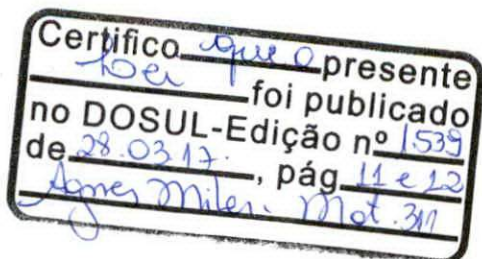 Certifico que o presente
Lei foi publicado
no DOSUL-Edição nº 1.539
de 28.03.17., pág 11 e 12
Agnes Milen. Mat. 311